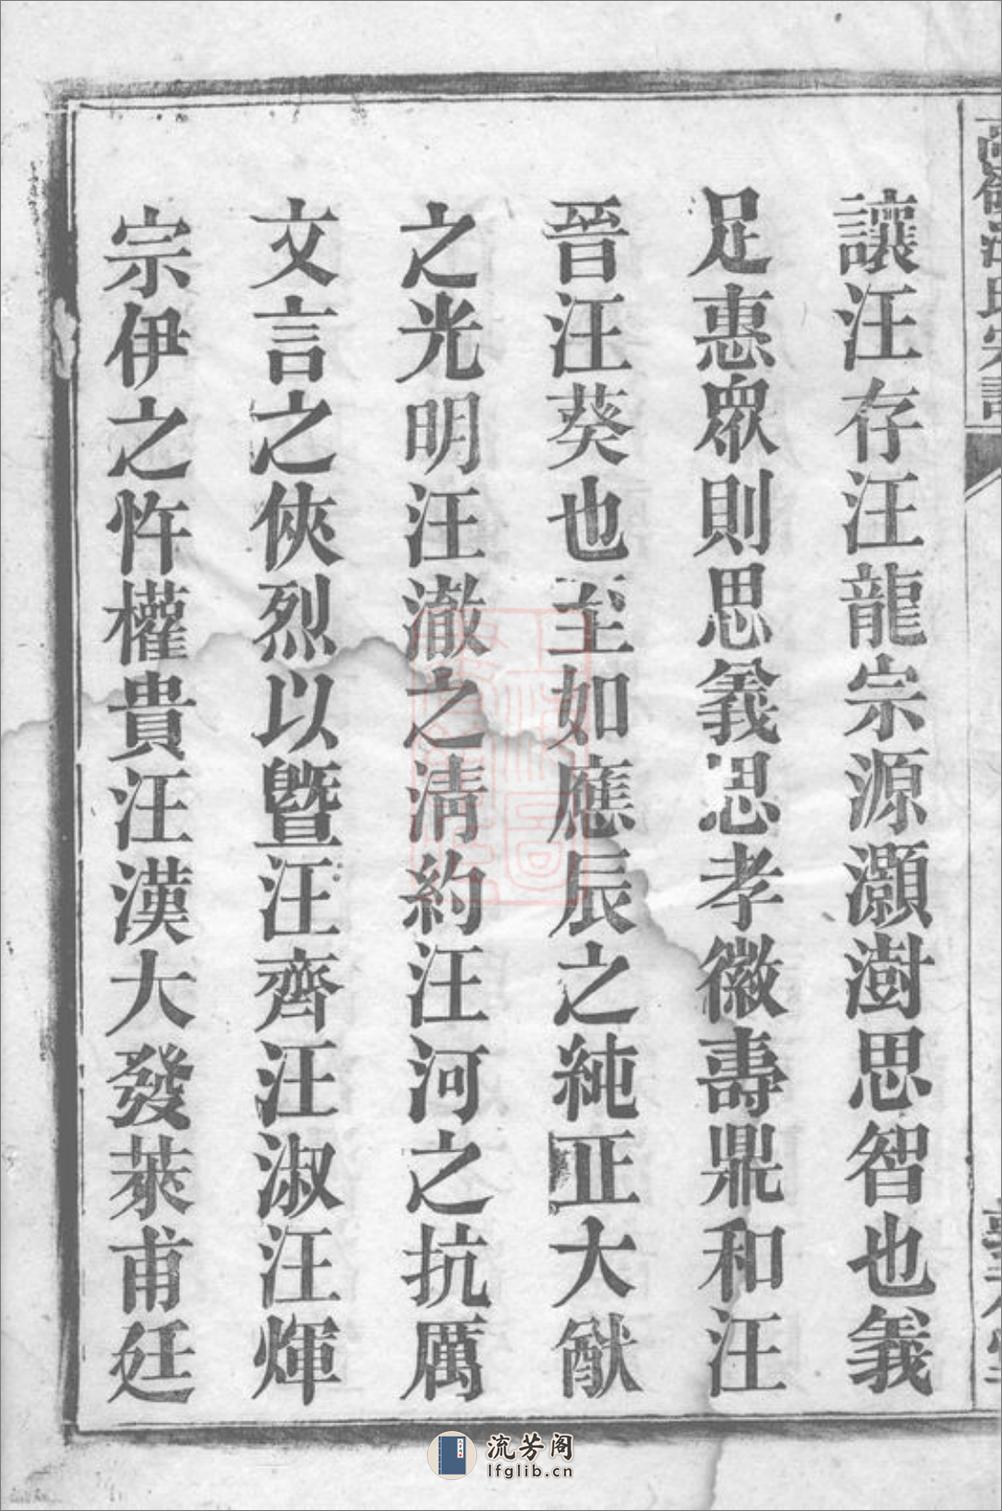 讓汪存汪龍宗源灝澍思智也義
足惠眾則思義思孝徽壽鼎和汪
晉汪葵也至如應辰之純正大猷
之光明汪澈之清約汪河之抗厲
文言之俠烈以暨汪齊汪淑汪煇
宗伊之忤權貴汪漢大發萊甫廷
流芳阁
lfglib.cn